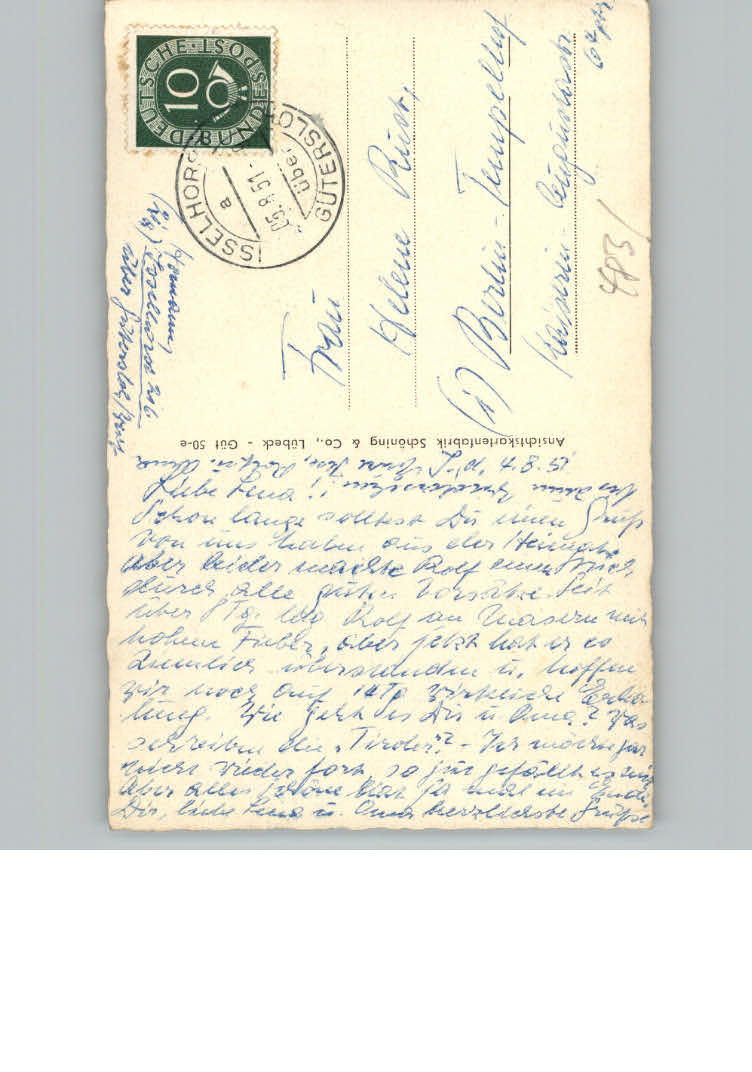 DEUTSCHE BUNDESPOST
10
ISSELHORST
über
GÜTERSLOH
a
05.8.51.-
Hermann,
Isselhorst 206
über Gütersloh/
Frau
Helene
Berlin - Tempelhof
Kaiserin-Augustastr.
483/
Ansichtskartenfabrik Schöning & Co., Lübeck - Güt 50-e
4.8.51.
Liebe Lena!
Schon lange solltest Du einen Gruß
von uns haben aus der Heimat,
aber leider machte Rolf einen Strich
durch alle guten Vorsätze. Seit
über 8 Tg. lag Rolf an Masern mit
hohem Fieber, aber jetzt hat er es
ziemlich überstanden u. hoffen
wir noch auf 14 Tg. wirkliche Erho-
lung. Wie geht es Dir u. Oma? Was
schreiben die "Tiroler"? - Ich möchte gar
nicht wieder fort so gut gefällt es mir
Aber alles Schöne hat ja mal ein Ende.
Dir, liebe Lena u. Oma herzlichste Grüße